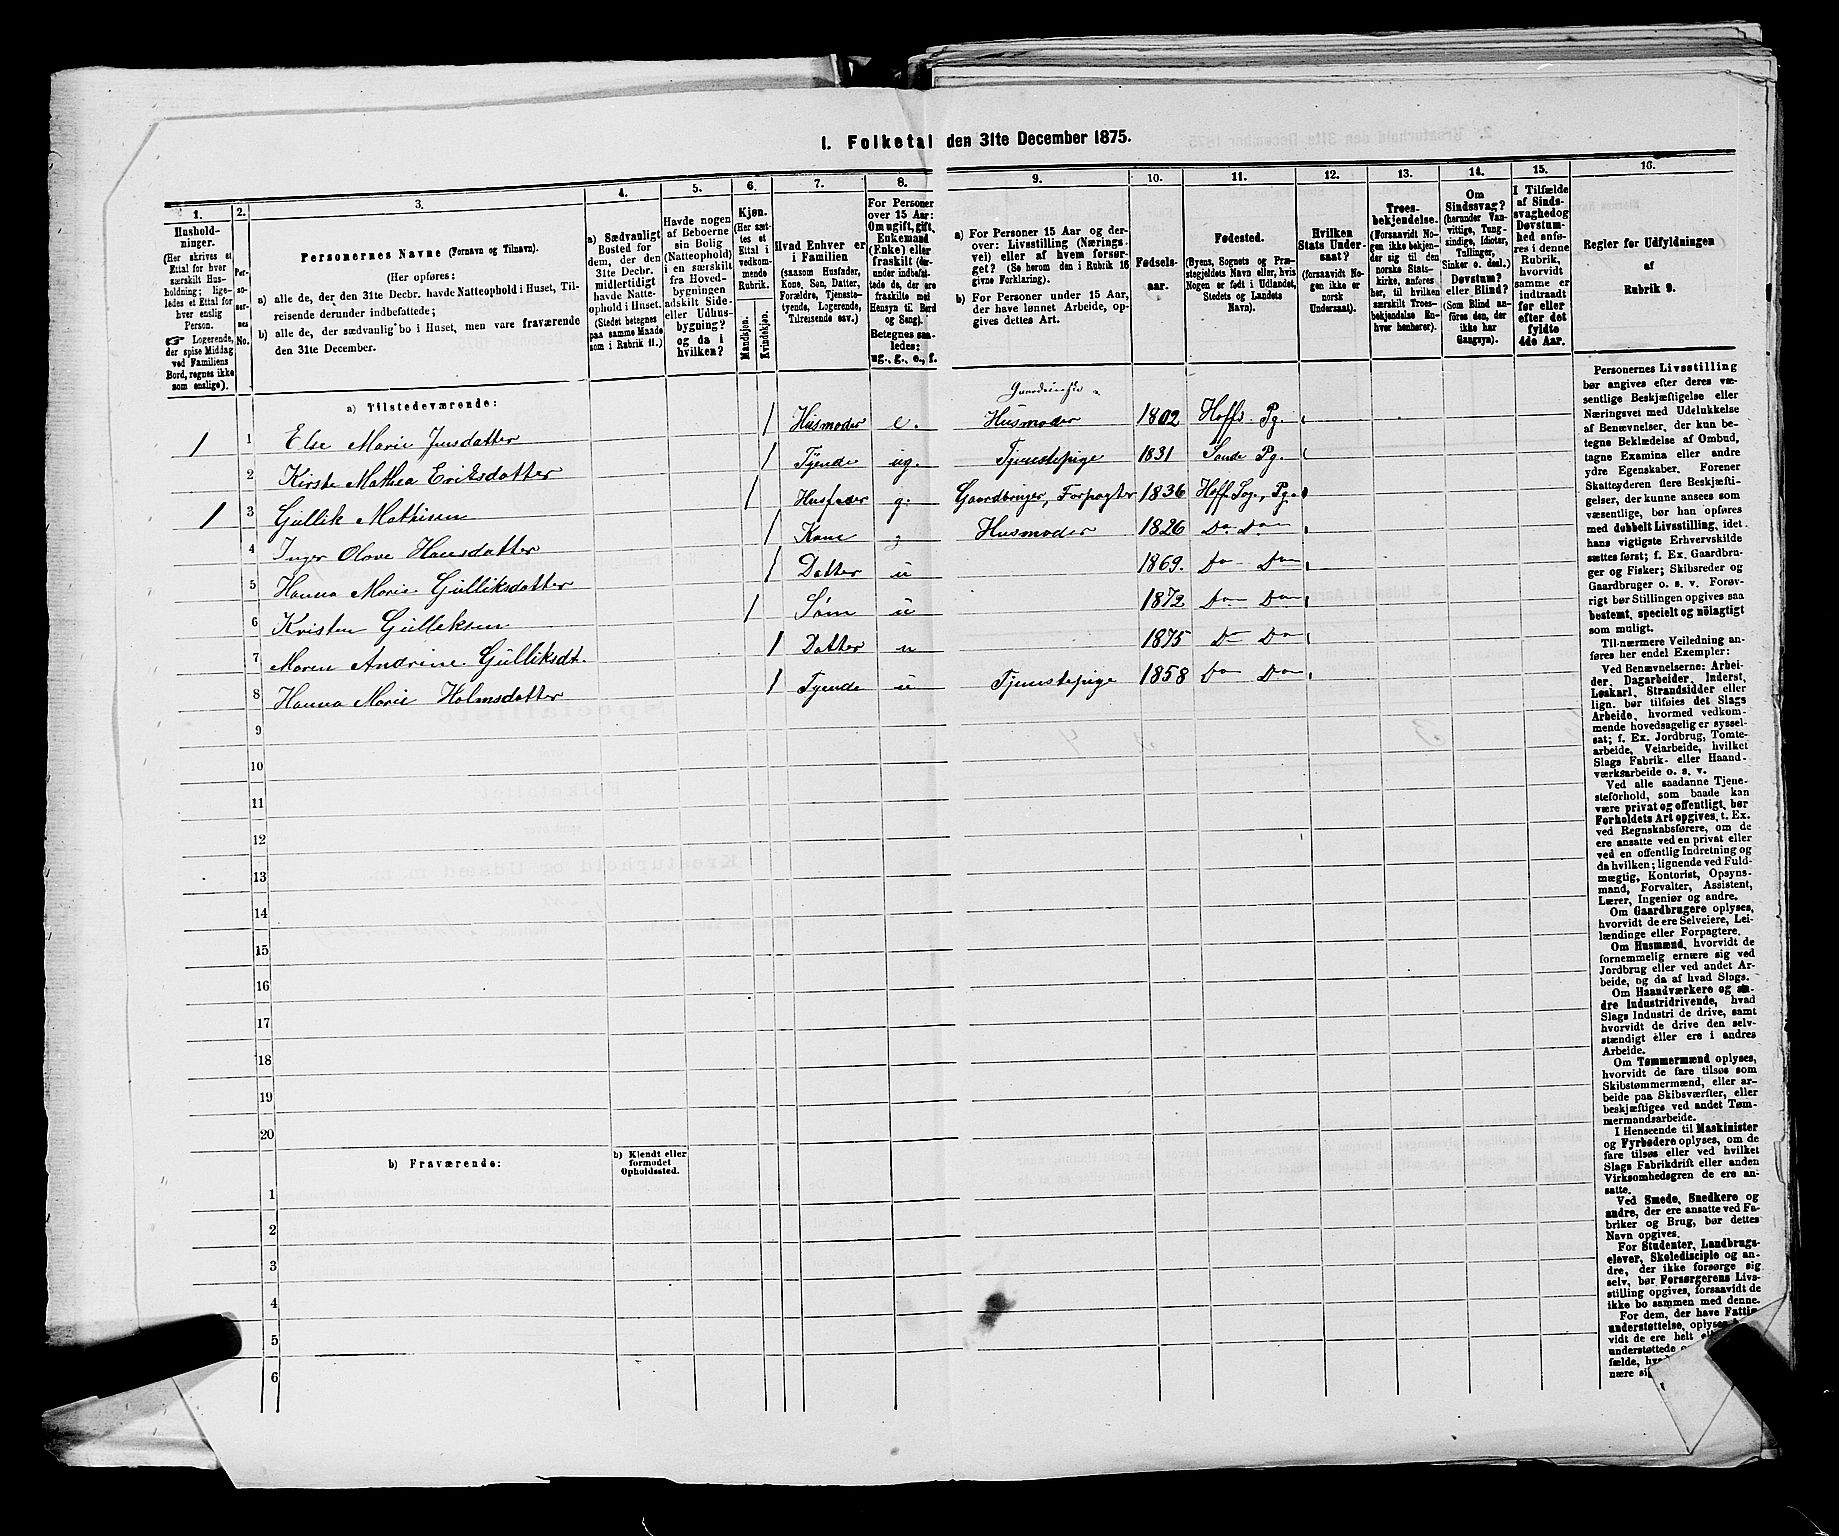 1. Folketal den 31te December 1875.
1. 2. 3. 4. 5. 6. 7. 8. 9. 10. 11. 12. 13. 14. 15. 16.
Hushold-
ninger.
(Her skrives et
Ettal for hver
særskilt Hus-
holdning; lige-
ledes et Ettal for
hver enslig
Person.
☞ Logerende,
der spise Middag
ved Familiens
Bord, regnes ikke
som enslige).
Per-
so-
ner-
nes
No.
Personernes Navne (Fornavn og Tilnavn).
(Her opføres:
a) alle de, der den 31te Decbr. havde Natteophold i Huset, Til-
reisende derunder indbefattede;
b) alle de, der sædvanlig bo i Huset, men vare fraværende
den 31te December.
a) Sædvanligt
Bosted for
dem, der den
31te Decbr.
midlertidigt
havde Natte-
ophold i Huset.
(Stedet betegnes
paa samme Maade
som i Rubrik 11.)
Havde nogen
af Beboerne
sin Bolig
(Natteophold)
i en særskilt
fra Hoved-
bygningen
adskilt Side-
eller Udhus-
bygning?
og da i
hvilken?
Kjøn.
(Her sæt-
tes et
Ettal i
vedkom-
mende
Rubrik.
Mandkjøn.
Kvindekjøn.
Hvad Enhver er
i Familien
(saasom Husfader,
Kone, Søn, Datter,
Forældre, Tjeneste-
tyende, Logerende,
Tilreisende osv.)
For Personer
over 15 Aar:
Om ugift, gift,
Enkemand
(Enke) eller
fraskilt (der-
under indbefat-
tede de, der ere
fraskilte med
Hensyn til Bord
og Seng).
Betegnes saa-
ledes:
ug., g., e., f.
a) For Personer 15 Aar og der-
over: Livsstilling (Nærings-
vei) eller af hvem forsør-
get? (Se herom den i Rubrik 16
givne Forklaring).
b) For Personer under 15 Aar,
der have lønnet Arbeide, op-
gives dettes Art.
Fødsels-
aar.
Fødested.
(Byens, Sognets og Præ-
stegjeldets Navn eller, hvis
Nogen er født i Udlandet,
Stedets og Landets
Navn).
Hvilken
Stats Under-
saat?
(forsaavidt No-
gen ikke er
norsk
Undersaat).
Troes-
bekjendelse.
(Forsaavidt No-
gen ikke bekjen-
der sig til den
norske Stats-
kirke, anføres
her, til hvilken
særskilt Troes-
bekjendelse En-
hver henhører).
Om
Sindssvag?
(herunder Van-
vittige, Tung-
sindige, Idioter,
Tullinger,
Sinker o. desl.)
Døvstum?
eller Blind?
(Som Blind an-
føres den, der
ikke har
Gangsyn).
I Tilfælde
af Sinds-
svaghed og
Døvstum-
hed anfø-
res i denne
Rubrik,
hvorvidt
samme er
indtraadt
før eller
efter det
fyldte
4de Aar.
Regler for Udfyldningen
af
Rubrik 9.
a) Tilstedeværende:
1 1 Else Marie Jensdatter / Husmoder e. Husmoder 1802 Hoffs Pg.
2 Kirste Mathea Eriksdatter / Tyende ug. Tjenestepige 1831 Sande Pg.
1 3 Gullik Mathisen / Husfader g. Gaardbruger, Forpagter 1836 Hoff Sog., Pg.
4 Inger Olave Hansdatter / Kone g Husmoder 1826 Do Do
5 Hanna Marie Gulliksdatter / Datter u 1869. Do Do
6 Kristen Gulleksen / Søn u 1872 Do Do
7 Maren Andrine Gulliksdt. / Datter u 1875 Do Do
8 Hanna Marie Holmsdatter / Tyende u Tjenestepige 1858 Do Do
9
10
11
12
13
14
15
16
17
18
19
20
b) Fraværende:
b) Kjendt eller
formodet
Opholdssted.
1
2
3
4
5
6
Personernes Livsstilling
bør angives efter deres væ-
sentlige Beskjæftigelse eller
Næringsvei med Udelukkelse
af Benævnelser, der kun be-
tegne Beklædelse af Ombud,
tagne Examina eller andre
ydre Egenskaber. Forener
Skatteyderen flere Beskjæfti-
gelser, der kunne ansees som
væsentlige, bør han opføres
med dobbelt Livsstilling, idet
hans vigtigste Erhvervskilde
sættes først; f. Ex. Gaardbru-
ger og Fisker; Skibsreder og
Gaardbruger o. s. v. Forøv-
rigt bør Stillingen opgives saa
bestemt, specielt og nøiagtigt
som muligt.
Til nærmere Veiledning an-
føres her endel Exempler:
Ved Benævnelserne: Arbei-
der, Dagarbeider, Inderst,
Løskarl, Strandsidder eller
lign. bør tilføies det Slags
Arbeide, hvormed vedkom-
mende hovedsagelig er syssel-
sat; f. Ex. Jordbrug, Tomte-
arbeide, Veiarbeide, hvilket
Slags Fabrik- eller Haand-
værksarbeide o. s. v.
Ved alle saadanne Tjene-
steforhold, som baade kan
være privat og offentligt, bør
Forholdets Art opgives, t. Ex.
ved Regnskabsførere, om de
ere ansatte ved en privat eller
ved en offentlig Indretning og
da hvilken; lignende ved Fuld-
mægtig, Kontorist, Opsyns-
mand, Forvalter, Assistent,
Lærer, Ingeniør og andre.
Om Gaardbrugere oplyses,
hvorvidt de ere Selveiere, Lei-
lændinge eller Forpagtere.
Om Husmænd, hvorvidt de
fornemmelig ernære sig ved
Jordbrug eller ved andet Ar-
beide, og da af hvad Slags.
Om Haandværkere og an-
dre Industridrivende, hvad
Slags Industri de drive, samt
hvorvidt de drive den selv-
stændigt eller ere i andres
Arbeide.
Om Tømmermænd oplyses,
hvorvidt de fare tilsøs som
Skibstømmermænd, eller ar-
beide paa Skibsværfter, eller
beskjæftiges ved andet Tøm-
mermandsarbeide.
I Henseende til Maskinister
og Fyrbødere oplyses, om de
fare tilsøs eller ved hvilket
Slags Fabrikdrift eller anden
Virksomhedsgren de ere an-
satte.
Ved Smede, Snedkere og
andre, der ere ansatte ved Fa-
briker og Brug, bør dettes
Navn opgives.
For Studenter, Landbrugs-
elever, Skoledisciple og an-
dre, der ikke forsørge sig
selv, bør Forsørgerens Livs-
stilling opgives, forsaavidt de
ikke bo sammen med denne.
For dem, der have Fattig-
understøttelse, oplyses
vidt de ere helt
understøttede
fælde,
nære